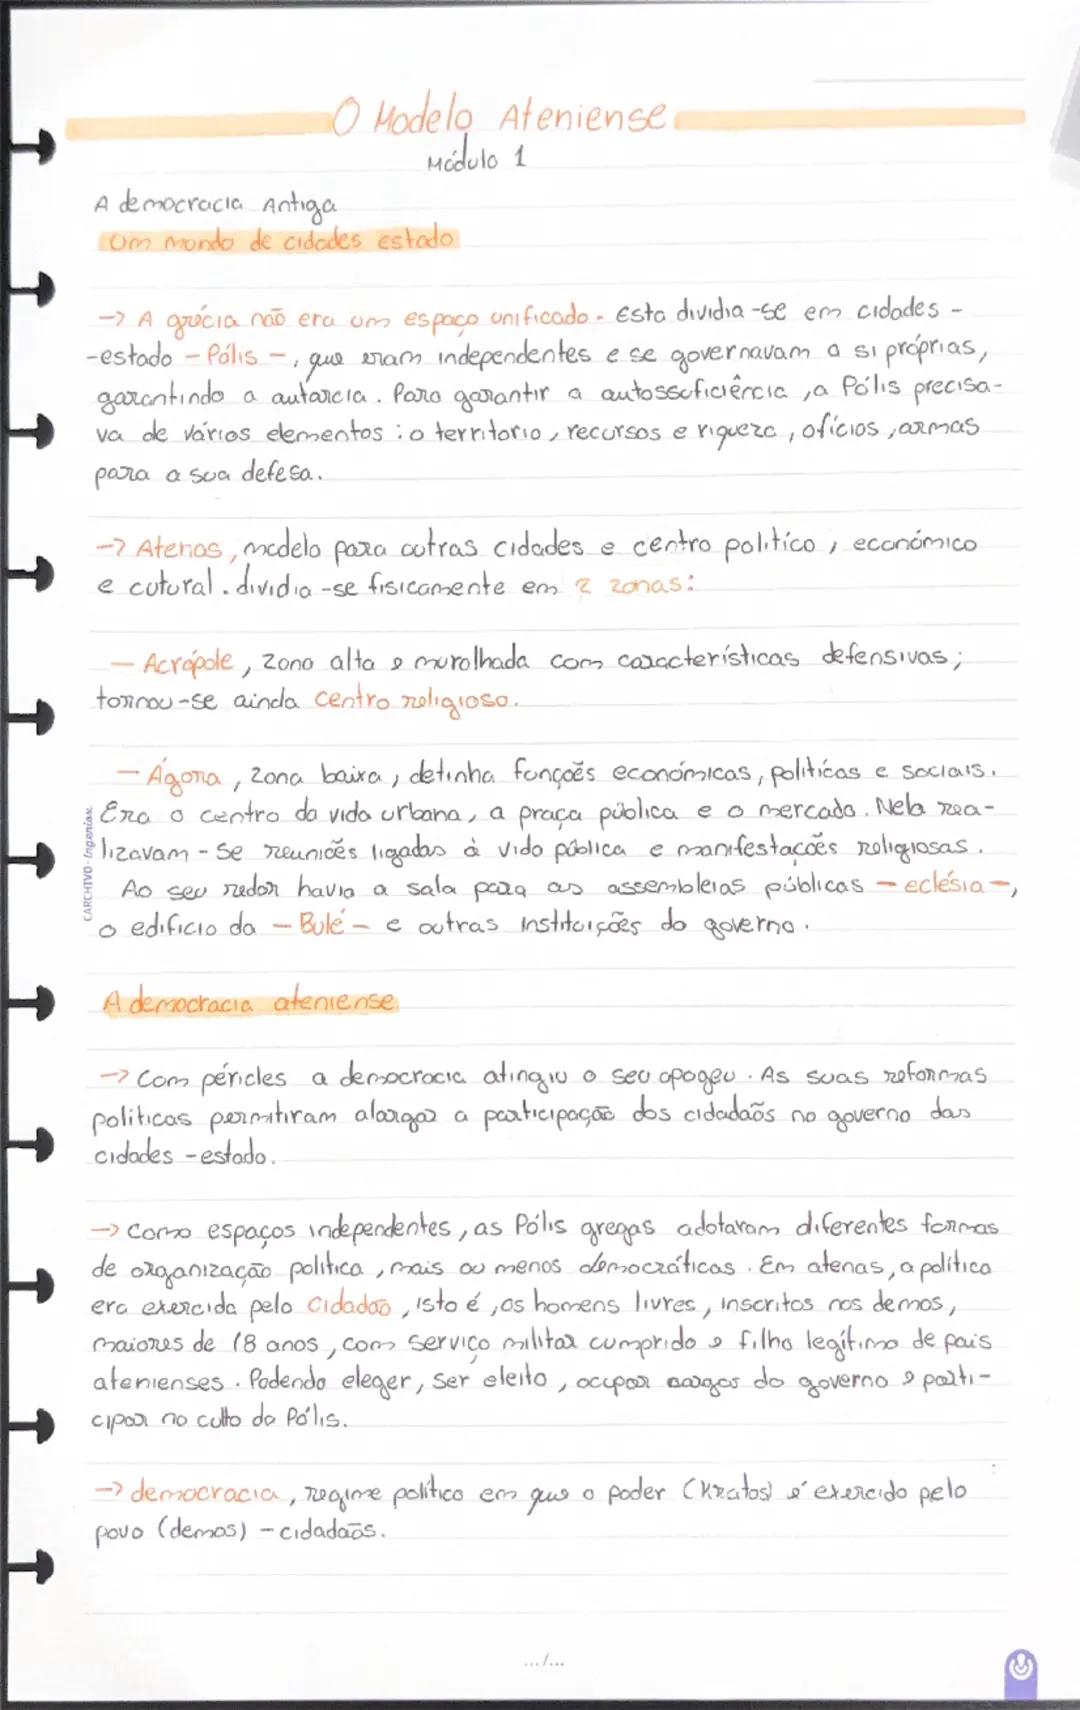 O Modelo Ateniense
Módulo 1
A democracia Antiga
Um mundo de cidades estado
→ A grécia não era um espaço unificado. Esta dividia-se em cidades -
-estado - Pólis -, que eram independentes e se governavam a si próprias,
garantindo a autarcia. Para garantir a autossuficiência, a Pólis precisa-
va de vários elementos: o territorio, recursos e riqueza, ofícios, armas
para a sua defesa.
→ Atenas, modelo para outras cidades e centro político, económico
e cutural. dividia-se fisicamente em 2 zonas:
- Acrópole, zona alta e muralhada com características defensivas;
tornou-se ainda centro religioso.
- Ágora, zona baixa, detinha funçoẽs económicas, políticas e sociais.
Era o centro da vida urbana, a praça pública e o mercado. Nela rea-
lizavam-se reunioẽs ligadas à vida pública e manifestacoẽs religiosas.
Ao seu redor havia a sala para as assembleias públicas - eclésia -,
o edificio da - Bulé - e outras instituições do governo.
A democracia ateniense
→ Com péricles a democracia atingiu o seu apogeu. As suas reformas
politicas permitiram alargar a participação dos cidadaõs no governo das
cidades -estado.
→ Como espaços independentes, as Pólis gregas adotaram diferentes formas
de organização politica, mais ou menos democráticas. Em atenas, a política
era exercida pelo Cidadão, isto é, os homens livres, inscritos nos demos,
maiores de 18 anos, com serviço militar cumprido e filho legítimo de pais
atenienses. Podendo eleger, ser eleito, ocupar cargos do governo e parti-
cipar no culto da Pólis.
→ democracia, regime político em que o poder (Kratos) é exercido pelo
povo (demos) - cidadaõs.
.../...
CARCHIVO-Ingeniox